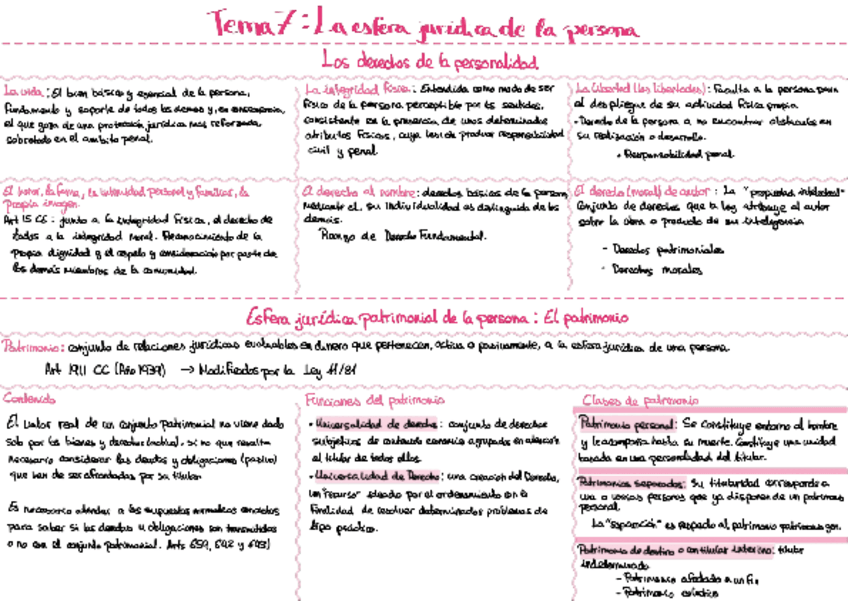 Tema 7: La esfera jurídica de la persona
Los derechos de la personalidad
La vida: El bien básico y esencial de la persona,
fundamento y soporte de todos los demás y, en consecuencia,
el que goza de una protección jurídica más reforzada,
sobretodo en el ámbito penal.
La integridad física: Entendida como modo de ser
físico de la persona perceptible por los sentidos,
consistente en la presencia de unos determinados
atributos físicos, cuya lesión produce responsabilidad
civil y penal.
La libertad (las libertades): Faculta a la persona para
el despliegue de su actividad física propia.
- Derecho de la persona a no encontrar obstáculos en
su realización o desarrollo.
• Responsabilidad penal.
El honor, la fama, la intimidad personal y familiar, la
propia imagen.
Art 15 CE: junto a la integridad física, el derecho de
todos a la integridad moral. Reconocimiento de la
propia dignidad y el respeto y consideración por parte de
los demás miembros de la comunidad.
El derecho al nombre: derechos básicos de la persona,
mediante el su individualidad es distinguida de los
demás.
Rango de Derecho Fundamental.
El derecho (moral) de autor: La "propiedad intelectual"
Conjunto de derechos que la ley atribuye al autor
sobre la obra o producto de su inteligencia
- Derechos patrimoniales
- Derechos morales
Esfera jurídica patrimonial de la persona: El patrimonio
Patrimonio: conjunto de relaciones jurídicas evaluables en dinero que pertenecen, activa o pasivamente, a la esfera jurídica de una persona.
Art 1911 CC (Año 1939) → Modificados por la Ley 11/81
Contenido
El valor real de un conjunto patrimonial no viene dado
solo por los bienes y derechos (activo), si no que resulta
necesario considerar las deudas y obligaciones (pasivo)
que han de ser afrontadas por su titular
Es necesario atender a los supuestos normativos concretos
para saber si las deudas u obligaciones son transmitidas
o no con el conjunto patrimonial. Arts 659, 642 y 643)
Funciones del patrimonio
• Universalidad de derecho: conjunto de derechos
subjetivos de contenido económico agrupados en atención
al titular de todos ellos.
• Universalidad de Derecho: una creación del Derecho,
un "recurso" ideado por el ordenamiento con la
finalidad de resolver determinados problemas de
tipo práctico.
Clases de patrimonio
Patrimonio personal: Se constituye entorno al hombre
y le acompaña hasta su muerte. Constituye una unidad
basada en una personalidad del titular.
Patrimonios separados: su titularidad corresponde a
una o varias personas que ya disponen de un patrimonio
personal.
La "separación" es respecto al patrimonio patrimonio gen.
Patrimonio de destino o con titular interino: titular
indeterminado
- Patrimonio afectado a un fin
- Patrimonio